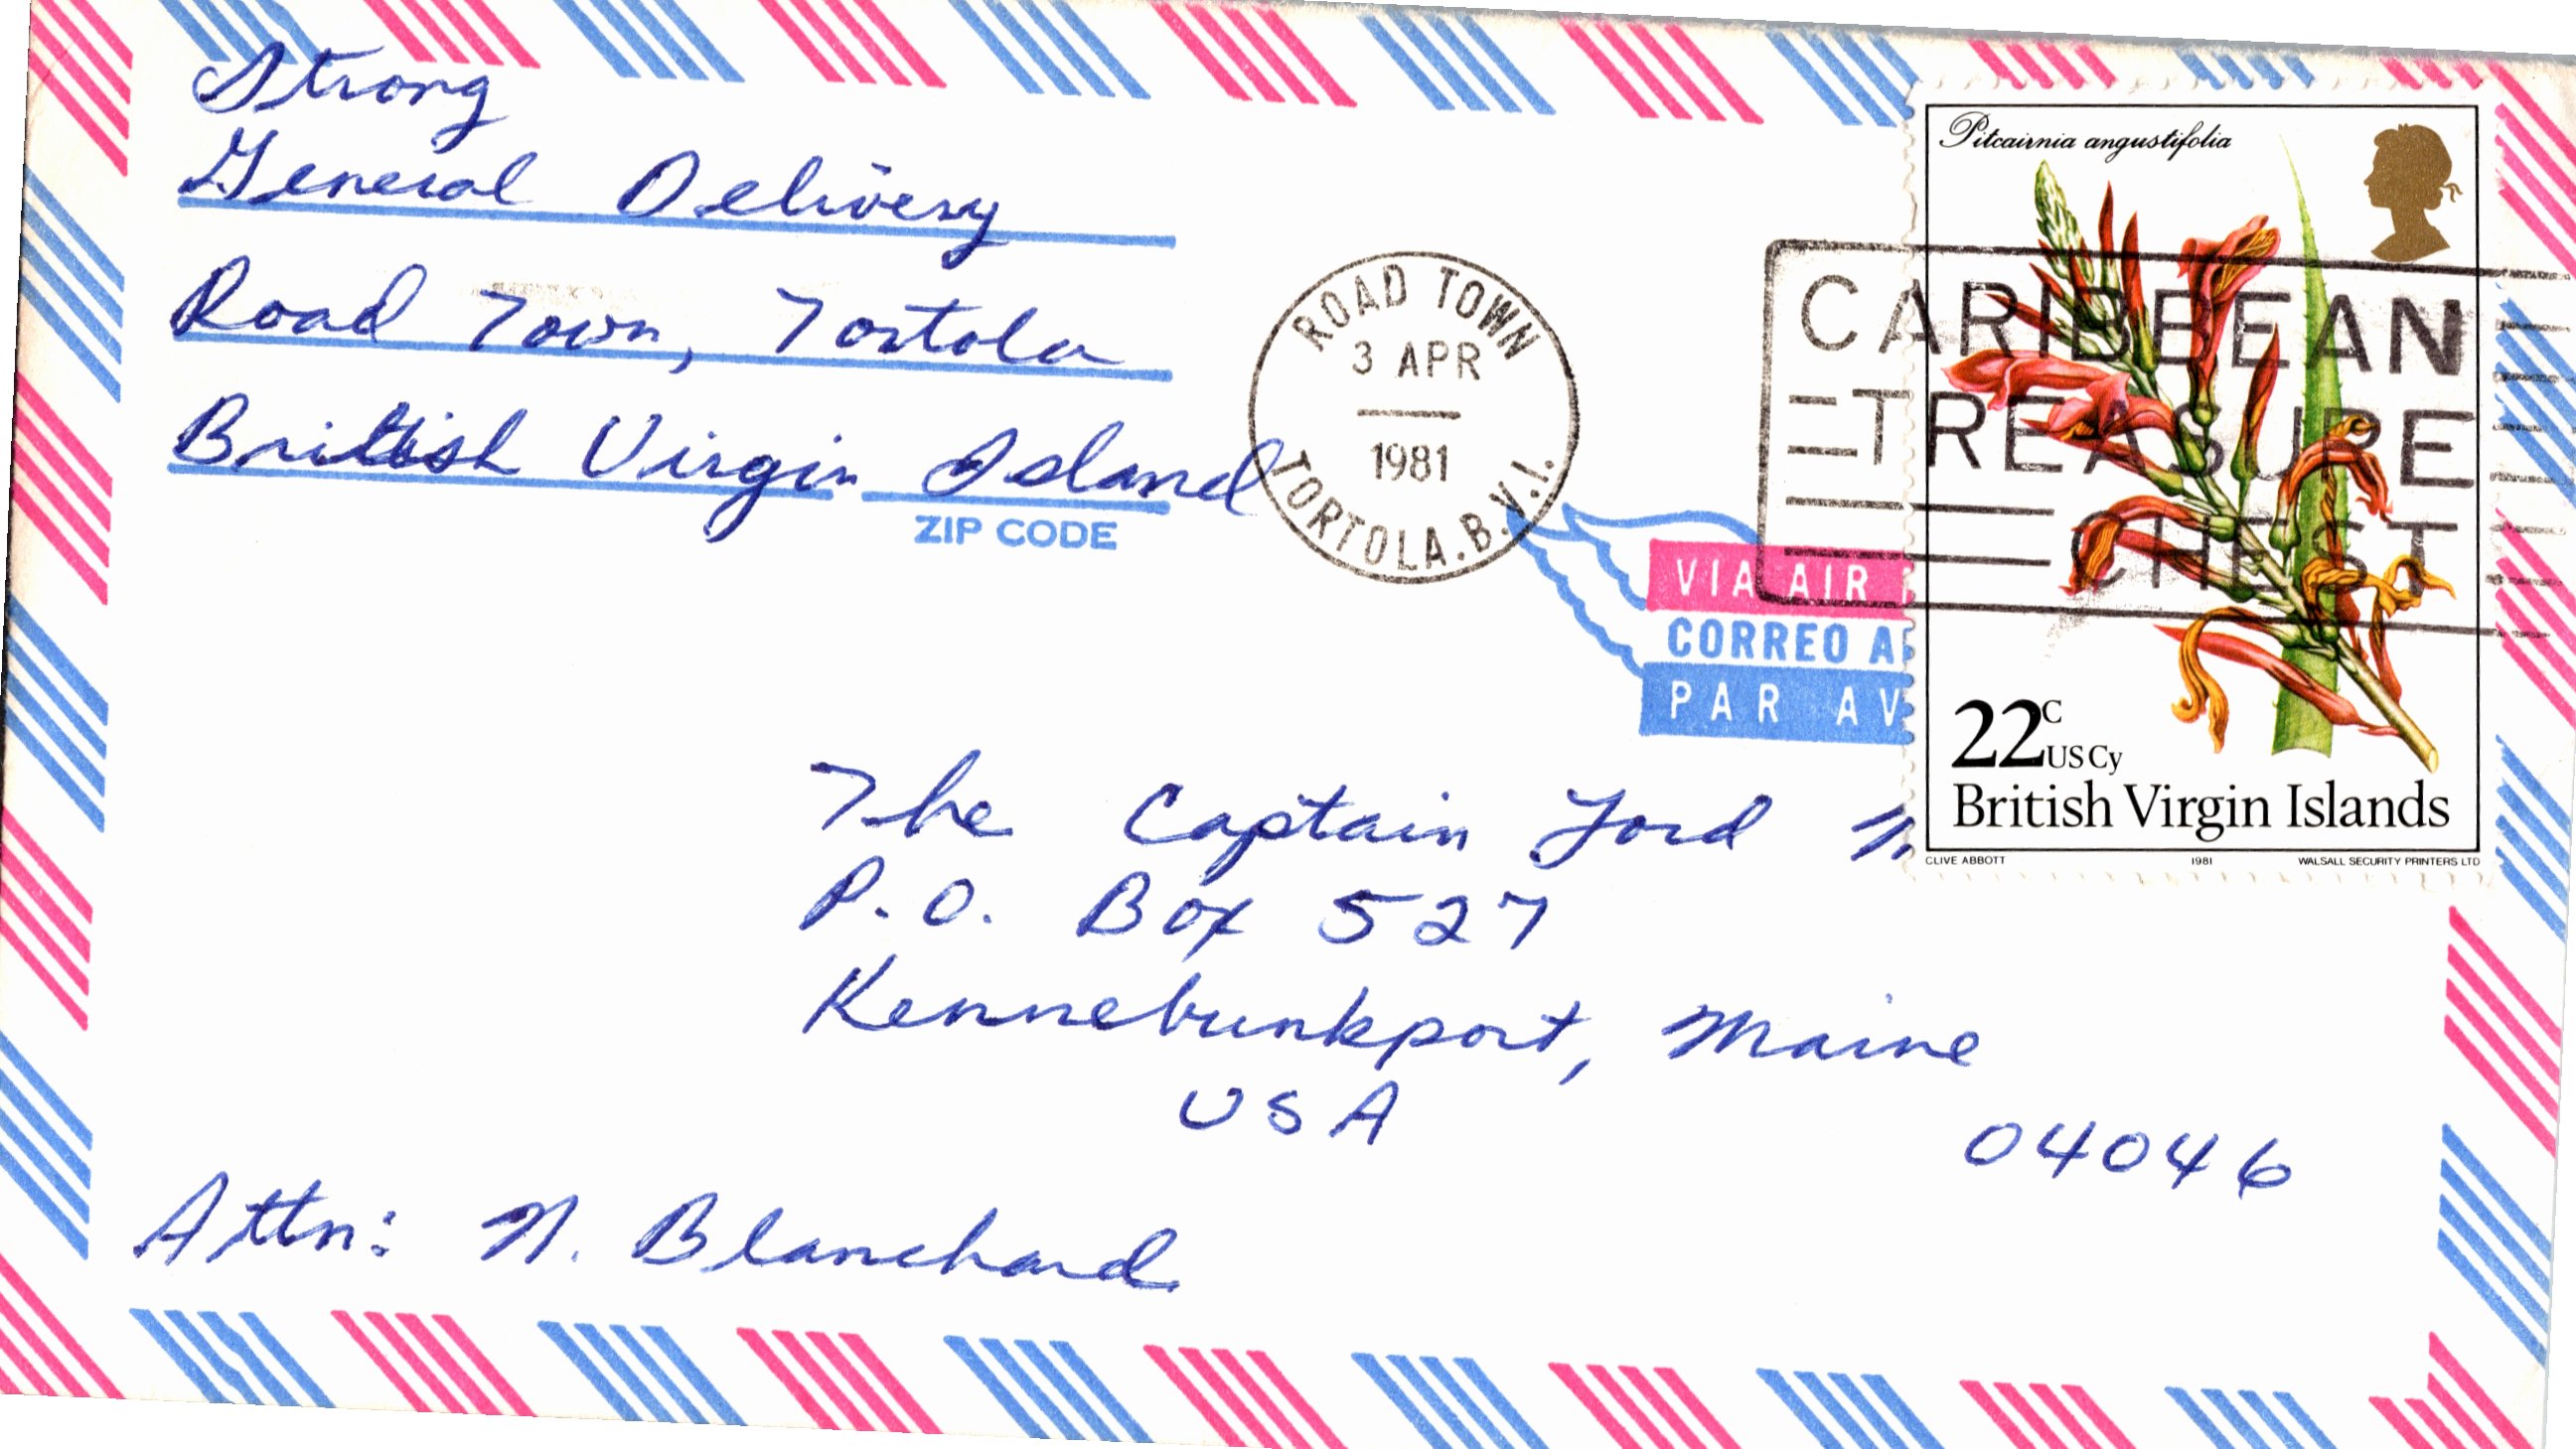 Strong
General Delivery
Road Town, Tortola
British Virgin Island
ZIP CODE
ROAD TOWN
3 APR
1981
TORTOLA.B.V.I.
CARIBBEAN
TREASURE
CHEST
VIA AIR
CORREO A
PAR AV
Pitcairnia angustifolia
22c
US Cy
British Virgin Islands
CLIVE ABBOTT 1981 WALSALL SECURITY PRINTERS LTD
The Captain Jord
P.O. Box 527
Kennebunkport, Maine
USA
04046
Attn: N. Blanchard